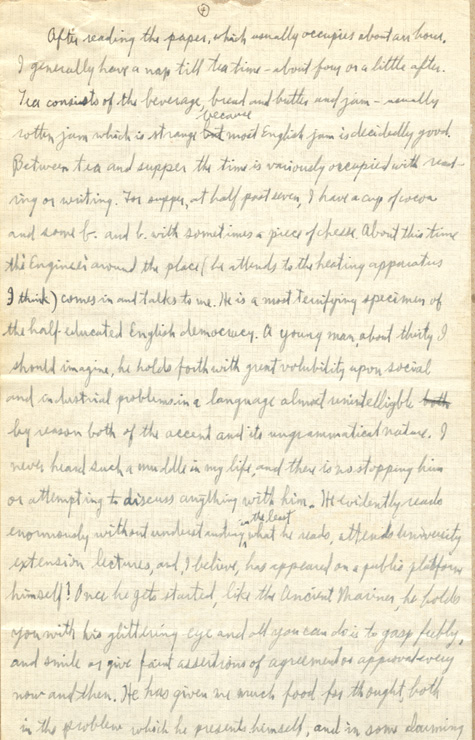 4
After reading the paper, which usually occupies about an hour,
I generally have a nap till tea time - about four or a little after.
Tea consists of the beverage, bread and butter and jam - usually
rotten jam which is strange because but most English jam is decidedly good.
Between tea and supper the time is variously occupied with read-
ing or writing. For supper, at half past seven, I have a cup of cocoa
and some b. and b. with sometimes a piece of cheese. About this time
the Engineer around the place (he attends to the heating apparatus
I think) comes in and talks to me. He is a most terrifying specimen of
the half-educated English democracy. A young man, about thirty I
should imagine, he holds forth with great volubility upon social
and industrial problems in a language almost unintelligible both
by reason both of the accent and its ungrammatical nature. I
never heard such a muddle in my life, and there is no stopping him
or attempting to discuss anything with him. He evidently reads
enormously without understanding in the least what he reads, attends university
extension lectures, and, I believe, has appeared on a public platform
himself! Once he gets started, like the Ancient Mariner, he holds
you with his glittering eye and all you can do is to gasp feebly,
and smile or give faint assertions of agreement or approval every
now and then. He has given me much food for thought, both
in the problem which he presents himself, and in some